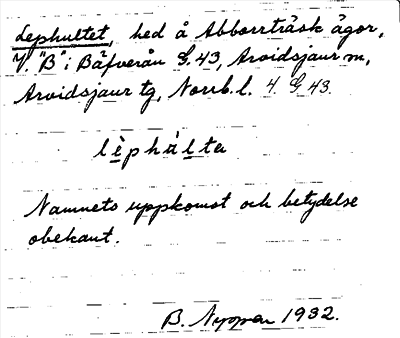 Lephultet, hed å Abborrträsk ägor,
V. "B" i Bäfverån G.43, Arvidsjaur m,
Arvidsjaur tg, Norrb. l. 4 G 43
lèphúlta
Namnets uppkomst och betydelse
obekant.
B. Nyman 1932.